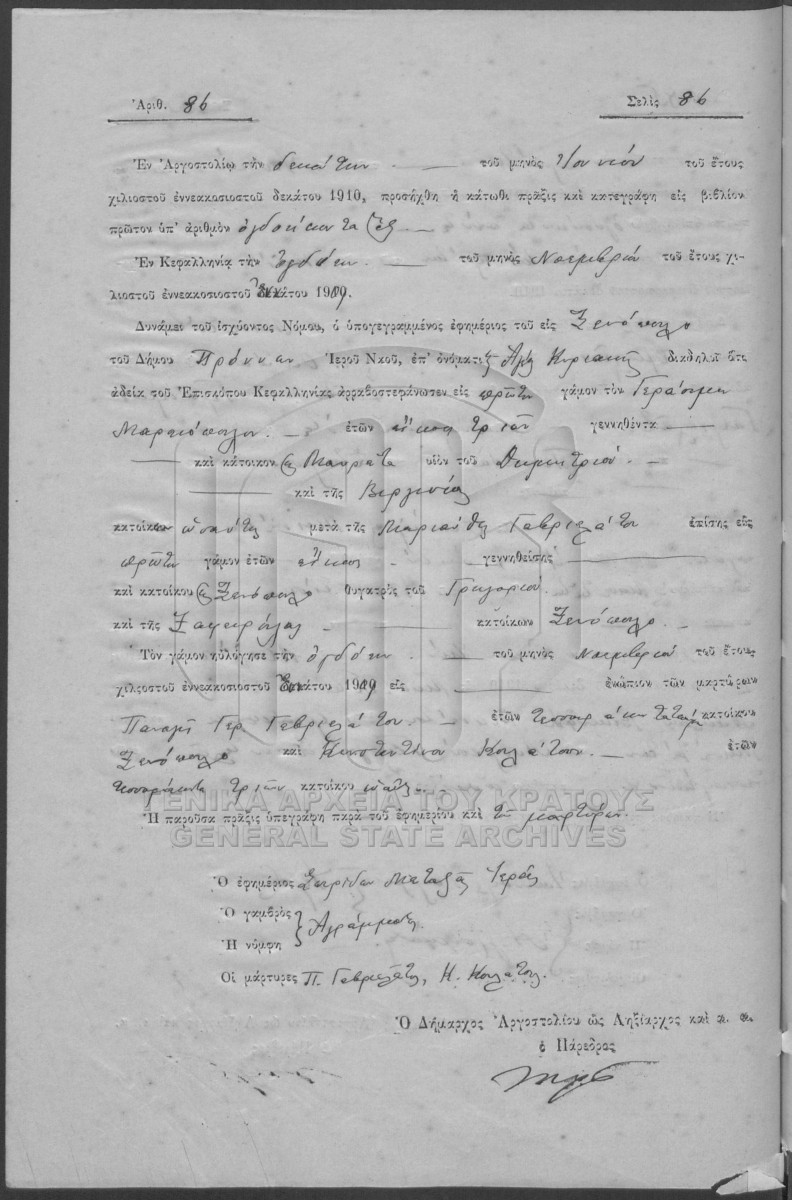 Ἀριθ. 86
Σελὶς 86
Ἐν Ἀργοστολίῳ τὴν δεκάτην τοῦ μηνὸς Ἰουνίου τοῦ ἔτους
χιλιοστοῦ ἐννεακοσιοστοῦ δεκάτου 1910, προσήχθη ἡ κάτωθι πρᾶξις καὶ κατεγράφη εἰς βιβλίον
πρῶτον ὑπ' ἀριθμὸν ὀγδοήκοντα ἕξ
Ἐν Κεφαλληνίᾳ τὴν ὀγδόην τοῦ μηνὸς Νοεμβρίου τοῦ ἔτους χι-
λιοστοῦ ἐννεακοσιοστοῦ 1909.
Δυνάμει τοῦ ἰσχύοντος Νόμου, ὁ ὑπογεγραμμένος ἐφημέριος τοῦ εἰς Ξενόπουλο
τοῦ Δήμου Πρόννων Ἱεροῦ Ναοῦ, ἐπ' ὀνόματι Ἁγ. Κυριακῆς διαδηλοῖ ὅτι
ἀδείᾳ τοῦ Ἐπισκόπου Κεφαλληνίας ἀρραβοστεφάνωσεν εἰς πρῶτον γάμον τὸν Γεράσιμον
Μαρκόπουλον ἐτῶν εἴκοσι τριῶν γεννηθέντα
καὶ κάτοικον Μαυράτα υἱὸν τοῦ Δημητρίου
καὶ τῆς Βεργινίας
κατοίκων ὡσαύτως μετὰ τῆς Μαριάνθης Γαβριελάτου ἐπίσης εἰς
πρῶτον γάμον ἐτῶν εἴκοσι γεννηθείσης
καὶ κατοίκου Ξενόπουλο θυγατρὸς τοῦ Γρηγορίου
καὶ τῆς Ζαφειρούλας κατοίκων Ξενόπουλο
Τὸν γάμον ηὐλόγησε τὴν ὀγδόην τοῦ μηνὸς Νοεμβρίου τοῦ ἔτους
χιλιοστοῦ ἐννεακοσιοστοῦ 1909 εἰς ἐνώπιον τῶν μαρτύρων
Παναγῆ Γερ. Γαβριελάτου ἐτῶν κατοίκου
Ξενόπουλο καὶ Κωνσταντίνου Κουλάτσου ἐτῶν
τεσσαράκοντα τριῶν κατοίκου ὡσαύτως
Ἡ παροῦσα πρᾶξις ὑπεγράφη παρὰ τοῦ ἐφημερίου καὶ τῶν μαρτύρων.
ΓΕΝΙΚΑ ΑΡΧΕΙΑ ΤΟΥ ΚΡΑΤΟΥΣ
GENERAL STATE ARCHIVES
Ὁ ἐφημέριος Σπυρίδων Μεταξᾶς Ἱερεύς
Ὁ γαμβρὸς
Ἀγράμματοι
Ἡ νύμφη
Οἱ μάρτυρες Π. Γαβριελάτος, Κ. Κουλάτσος.
Ὁ Δήμαρχος Ἀργοστολίου ὡς Ληξίαρχος καὶ α. α.
ὁ Πάρεδρος